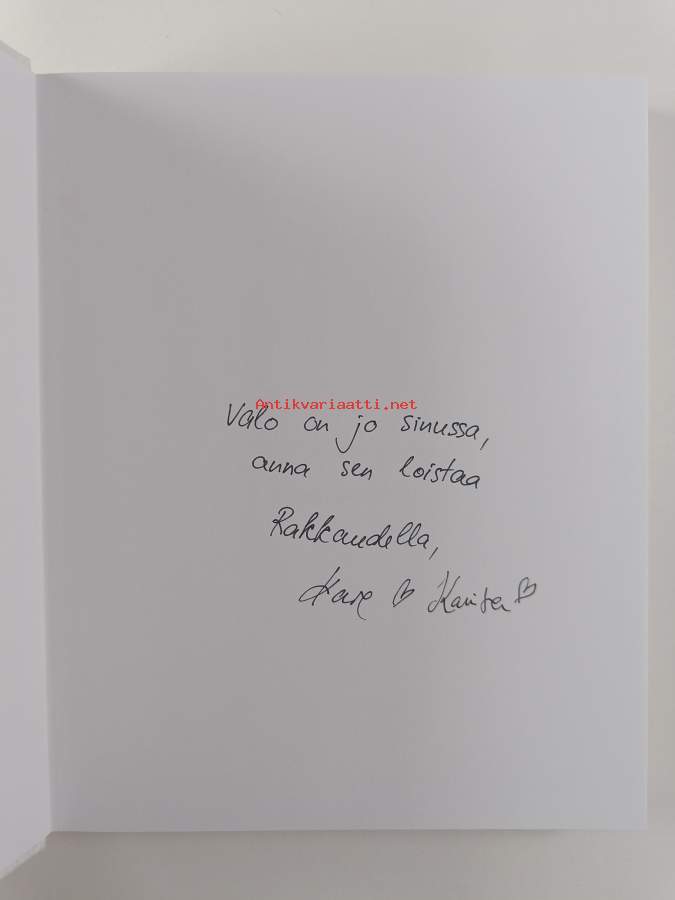 Antikvariaatti.net
Valo on jo sinussa,
anna sen loistaa
Rakkaudella,